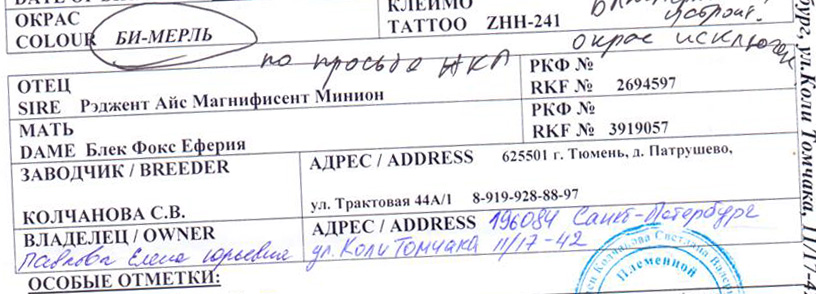 ОКРАС КЛЕЙМО
COLOUR БИ-МЕРЛЬ TATTOO ZHH-241
по просьбе НКП окрас исключен
ОТЕЦ РКФ №
SIRE Рэджент Айс Магнифисент Минион RKF № 2694597
МАТЬ РКФ №
DAME Блек Фокс Еферия RKF № 3919057
ЗАВОДЧИК / BREEDER АДРЕС / ADDRESS 625501 г. Тюмень, д. Патрушево,
КОЛЧАНОВА С.В. ул. Трактовая 44А/1 8-919-928-88-97
ВЛАДЕЛЕЦ / OWNER АДРЕС / ADDRESS 196084 Санкт-Петербург
Павлова Елена Юрьевна ул. Коли Томчака 11/17-42
ОСОБЫЕ ОТМЕТКИ:
Колчанова Светлана
Племенной
ул. Коли Томчака, 11/17-4